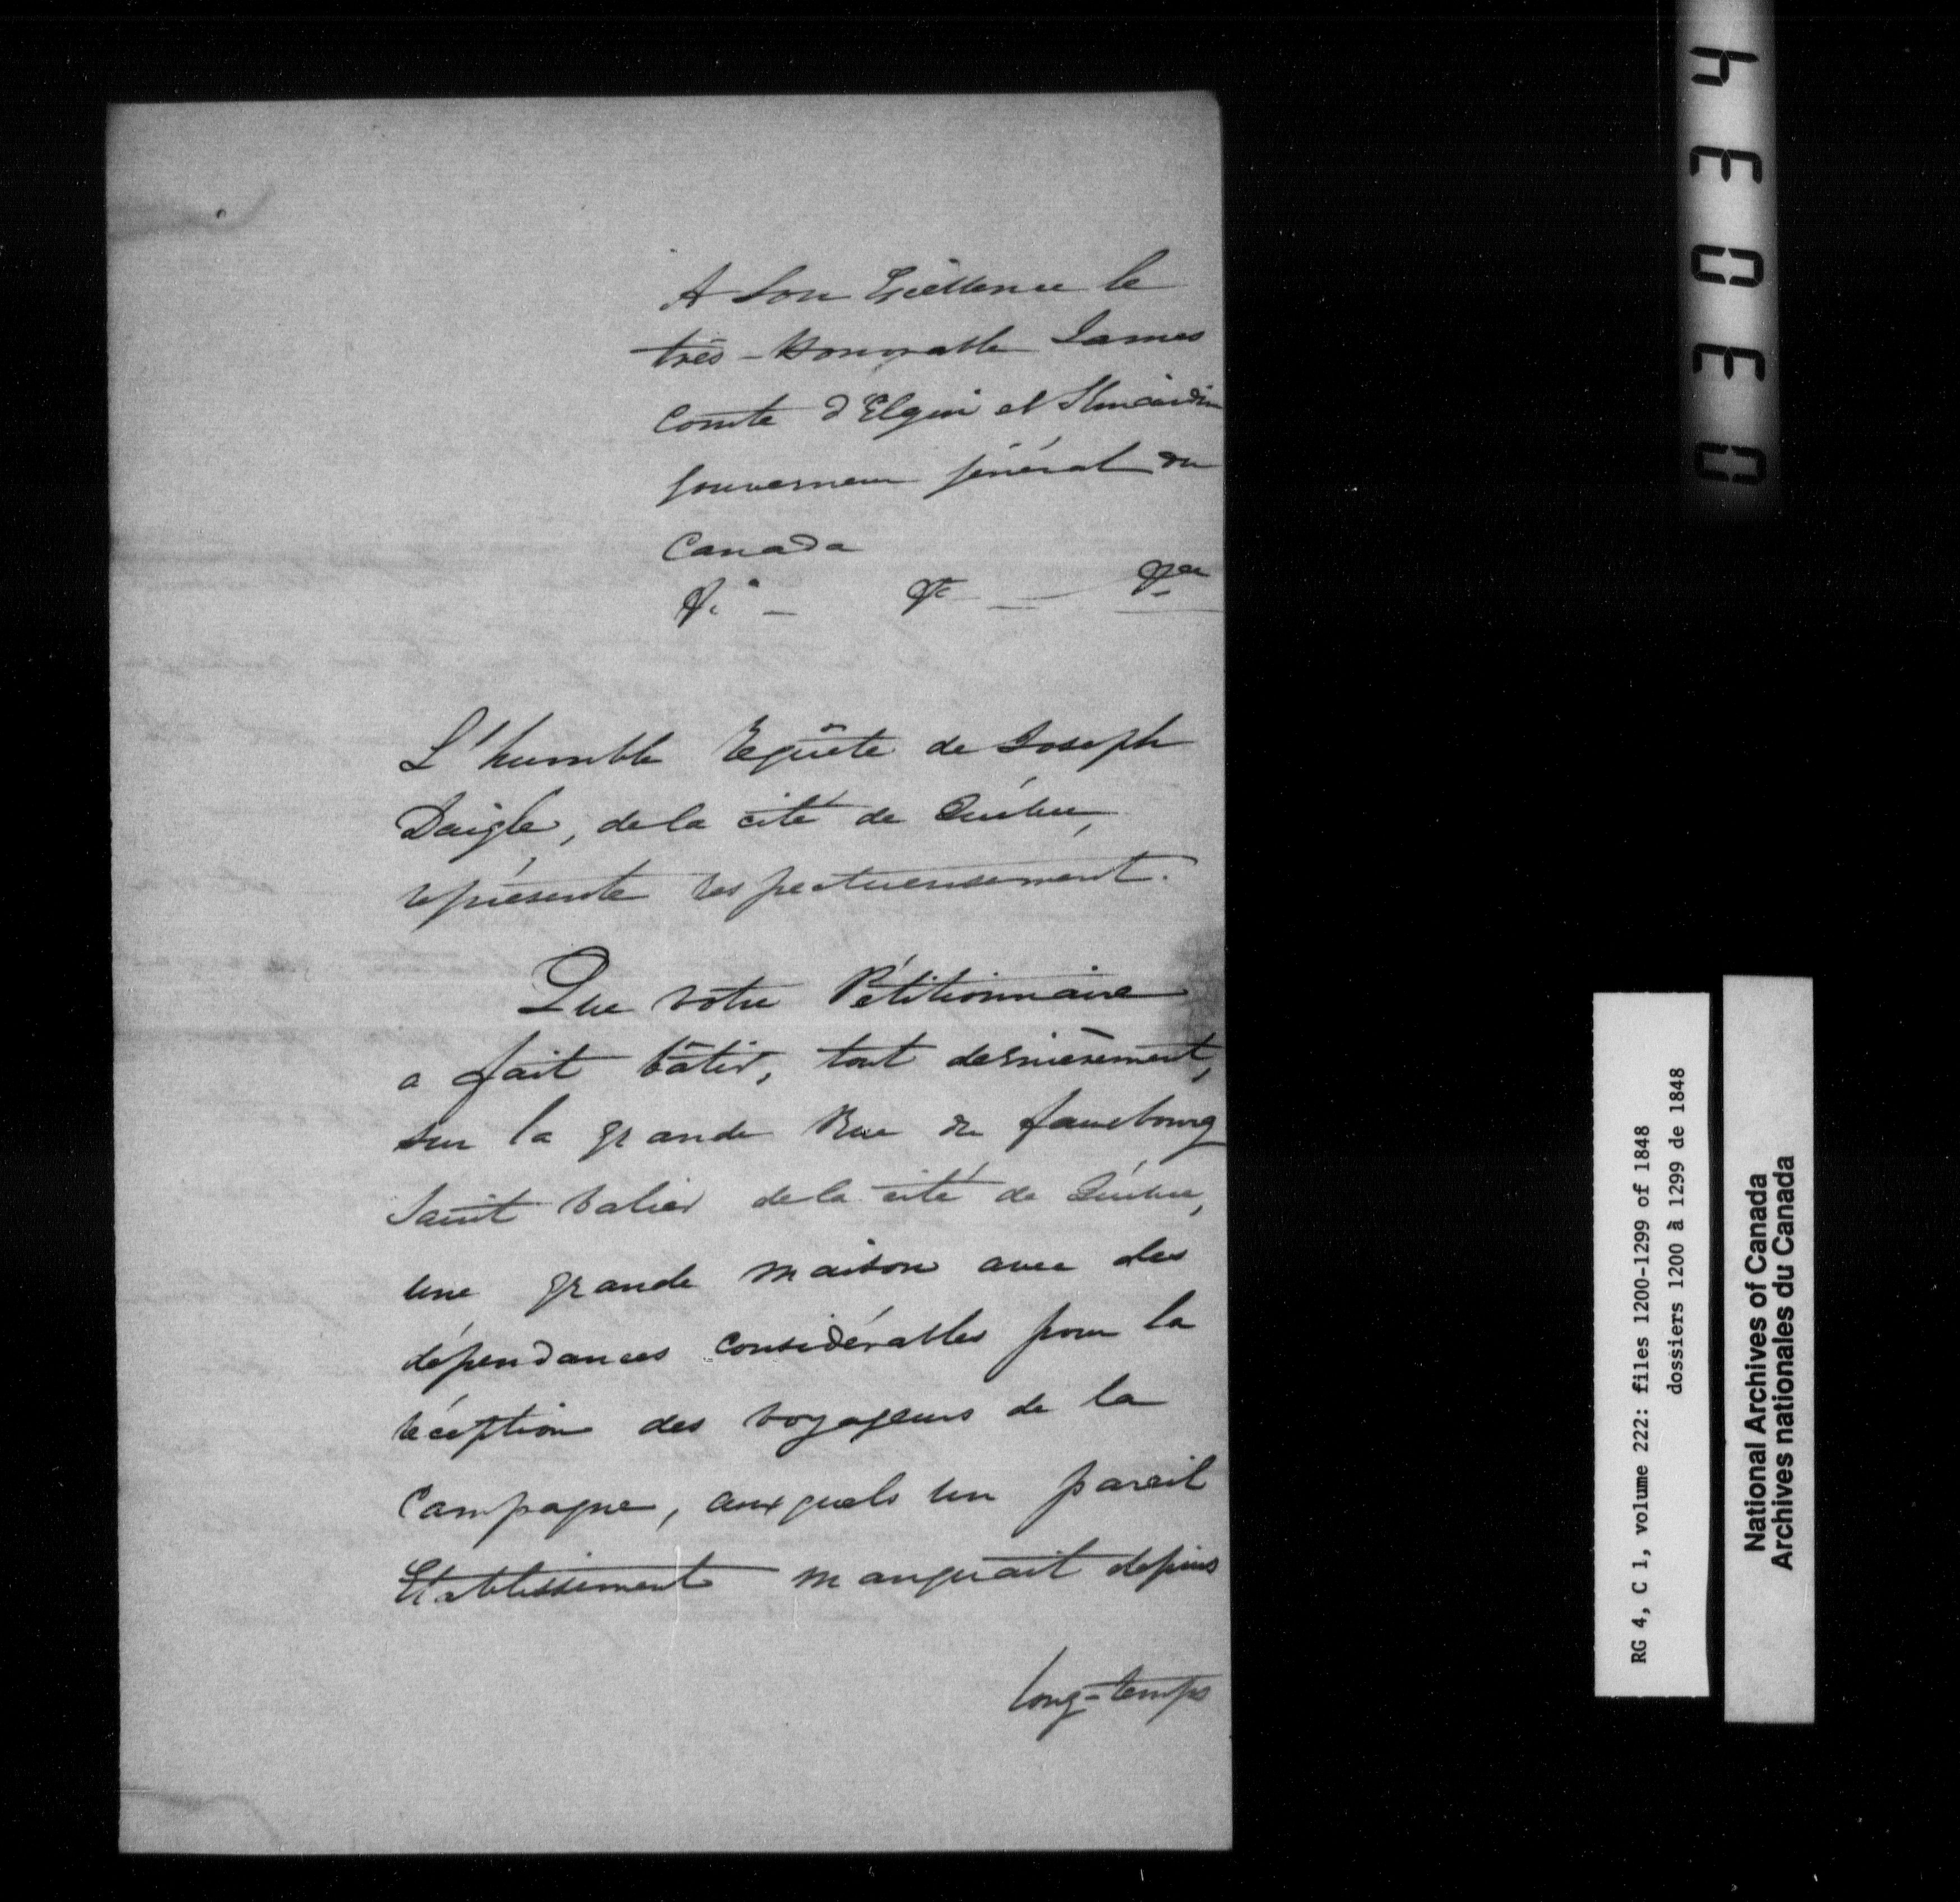 A Son Excellence le
très-Honorable James
Comte d'Elgin et Kincardin
Gouverneur général du
Canada
&c &c &ca
L'humble Requête de Joseph
Daigle, de la cité de Québec,
représente respectueusement.
Que votre Pétitionnaire
a fait bâtir, tout dernièrement,
sur la grande Rue du fauxbourg
Saint Valier de la cité de Québec,
une grande maison avec des
dépendances considérables pour la
réception des voyageurs de la
Campagne, auxquels un pareil
Etablissement manquait depuis
long-temps
43030
RG 4, C 1, volume 222: files 1200-1299 of 1848
dossiers 1200 à 1299 de 1848
National Archives of Canada
Archives nationales du Canada